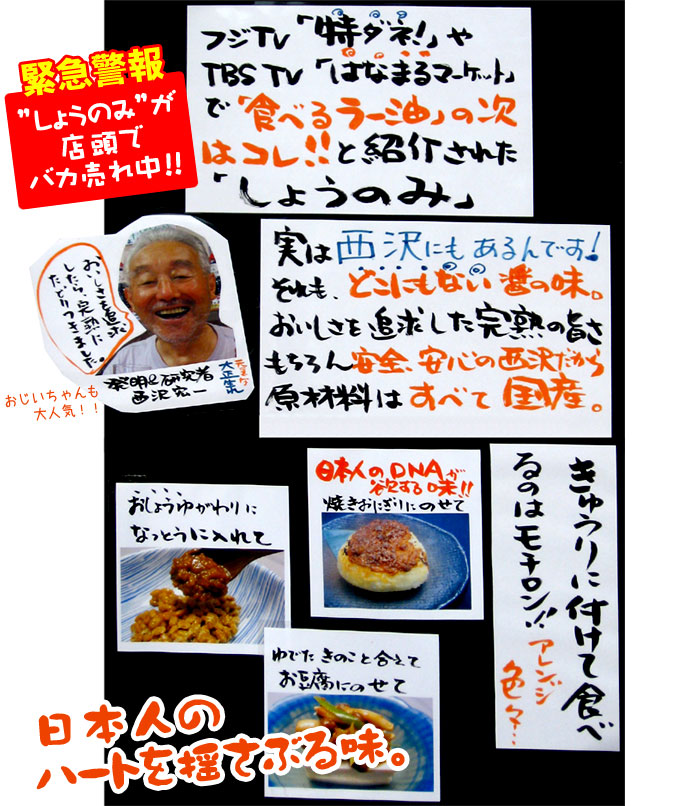 緊急警報
"しょうのみ"が
店頭で
バカ売れ中!!
フジTV「特ダネ!」や
TBS TV「はなまるマーケット」
で「食べるラー油」の次
はコレ!!と紹介された
「しょうのみ」
実は西沢にもあるんです!
それも、どこにもない醤の味。
おいしさを追求した完熟の旨さ
もちろん安全、安心の西沢だから
原材料はすべて国産。
おいしさを追求
したら、完熟に
たどりつきました。
発明&研究者
西沢宏一
大正生れ
おじいちゃんも
大人気!!
おしょうゆがわりに
なっとうに入れて
日本人のDNAが
欲する味!!
焼きおにぎりにのせて
きゅうりに付けて食べ
るのはモチロン!!
アレンジ
色々…
ゆでたきのこと合えて
お豆腐にのせて
日本人の
ハートを揺さぶる味。